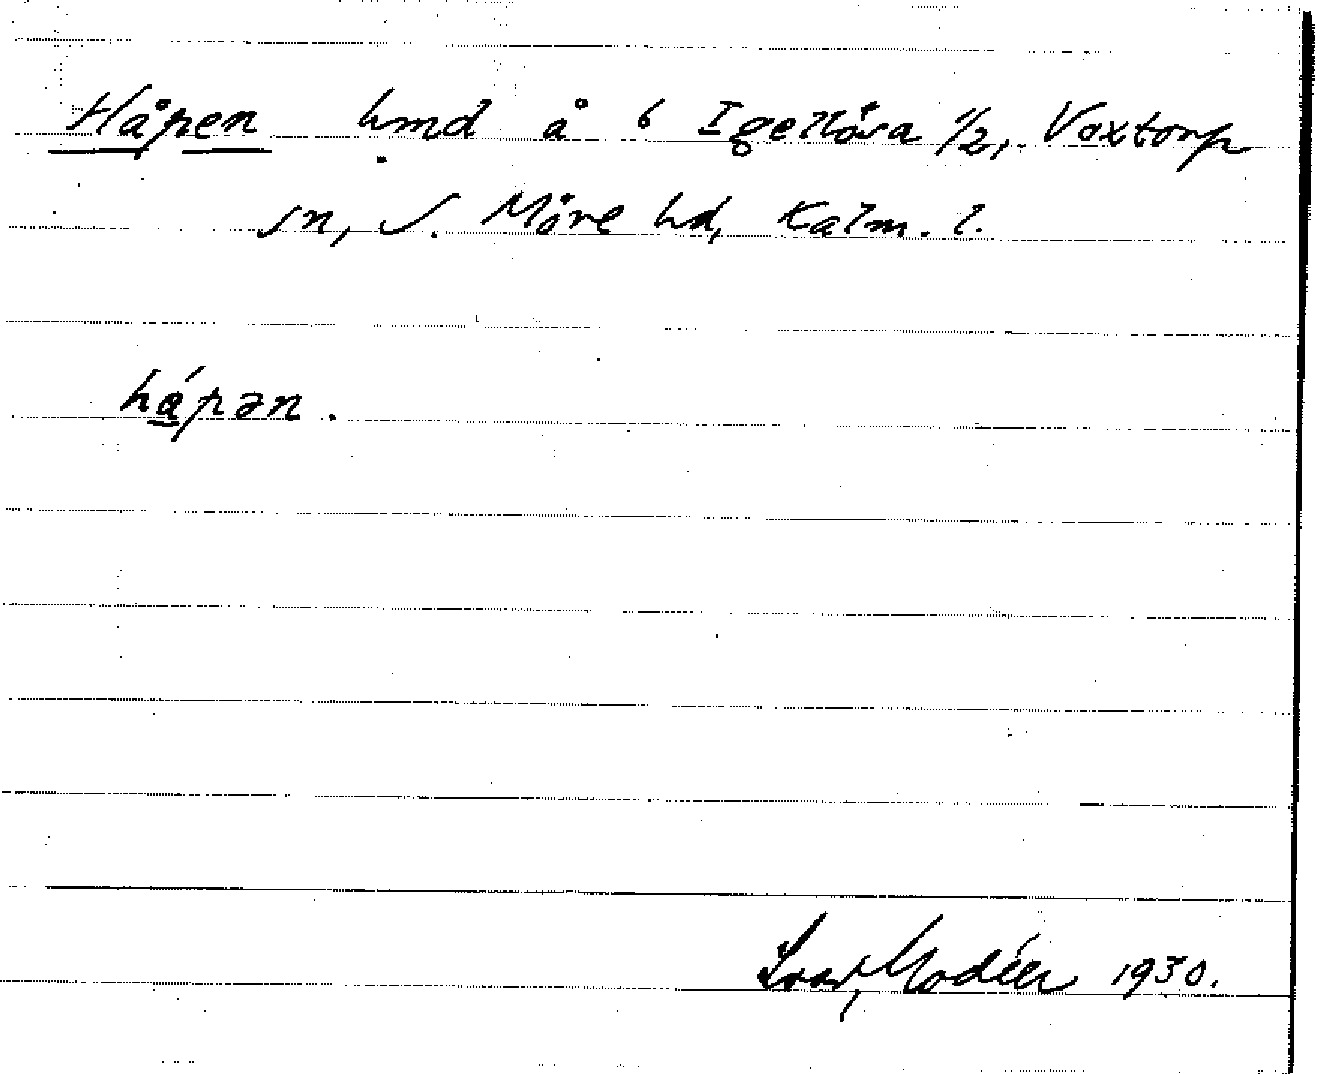 Håpen hmd å 6 Igellösa 1/2, Voxtorp
sn, S. Möre hd, Kalm. l.
hápən.
Ivar Modéer 1930.